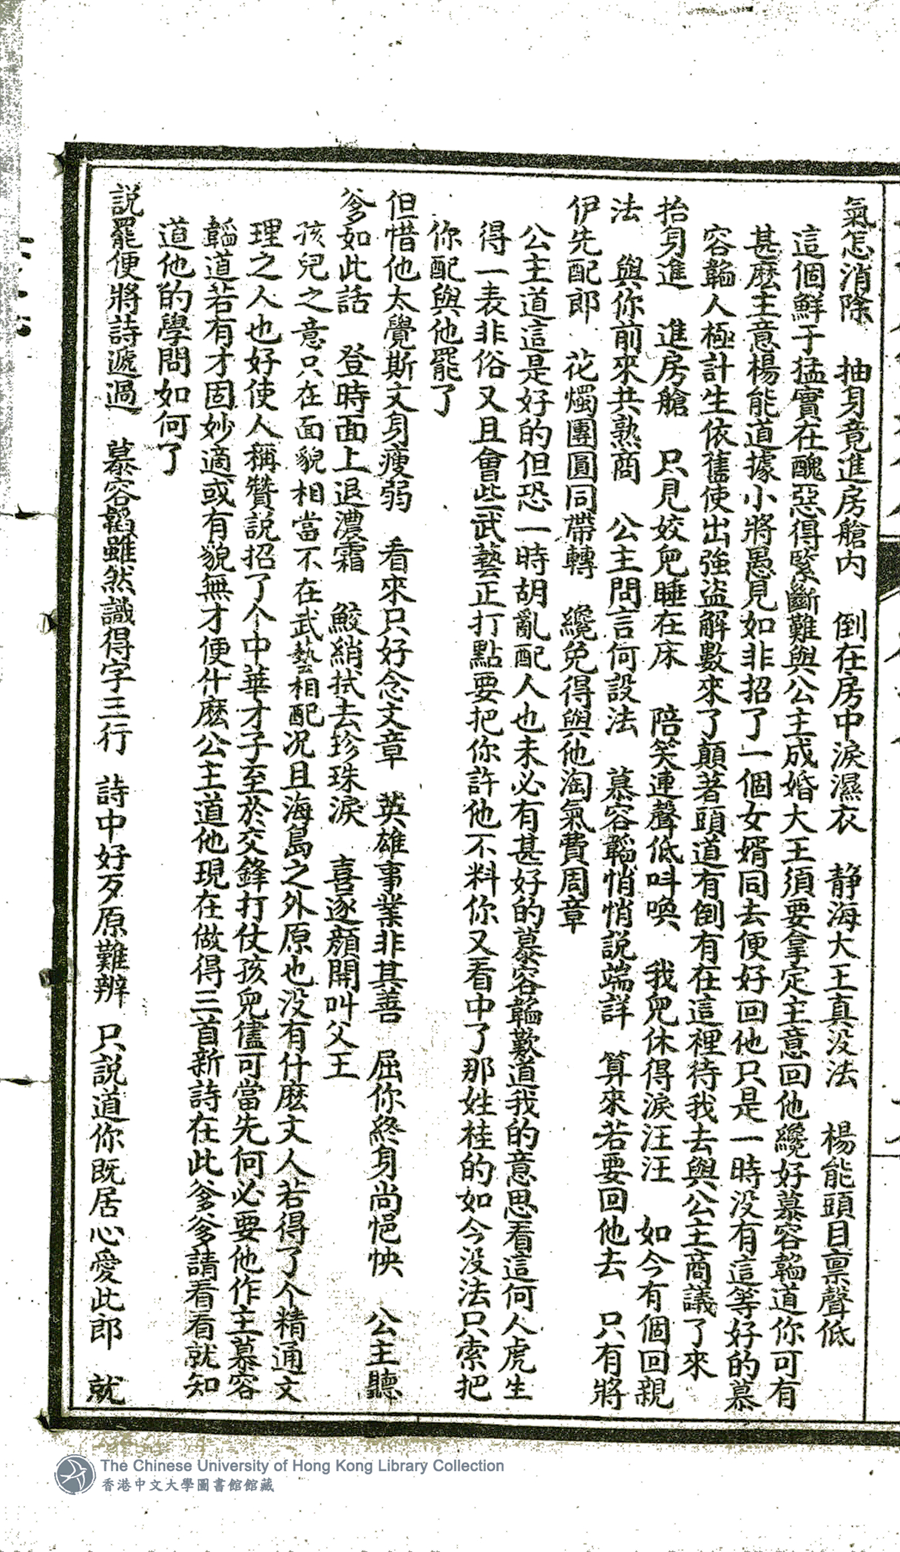 氣怎消除　抽身竟進房艙內　倒在房中淚濕衣　靜海大王真沒法　楊能頭目禀聲低
這個鮮于猛實在醜惡得緊斷難與公主成婚大王須要拿定主意回他纔好慕容韜道你可有
甚麽主意楊能道據小將愚見如非招了一個女婿同去便好回他只是一時没有這等好的慕
容韜人極計生依舊使出強盜解數來了顛著頭道有倒有在這裡待我去與公主商議了來
抬身進　進房艙　只見姣兒睡在床　陪笑連聲低呌喚　我兒休得淚汪汪　如今有個回親
法　與你前來共熟商　公主問言何設法　慕容韜悄悄説端詳　算來若要回他去　只有將
伊先配郎　花燭團圓同帶轉　纔免得與他淘氣費周章
公主道這是好的但恐一時胡亂配人也未必有甚好的慕容韜歎道我的意思看這何人虎生
得一表非俗又且會些武藝正打點要把你許他不料你又看中了那姓桂的如今没法只索把
你配與他罷了
但惜他太覺斯文身瘦弱　看來只好念文章　英雄事業非其善　屈你終身尚悒怏　公主聽
爹如此話　登時面上退濃霜　鮫綃拭去珍珠淚　喜逐顏開叫父王
孩兒之意只在面貌相當不在武藝相配况且海島之外原也没有什麽文人若得了个精通文
理之人也好使人稱贊説招了个中華才子至於交鋒打仗孩兒儘可當先何必要他作主慕容
韜道若有才固妙適或有貌無才便什麽公主道他現在做得三首新詩在此爹爹請看看就知
道他的學問如何了
説罷便將詩遞過　慕容韜雖然識得字三行　詩中好歹原難辨　只說道你既居心愛此郎　就
The Chinese University of Hong Kong Library Collection
香港中文大學圖書館館藏